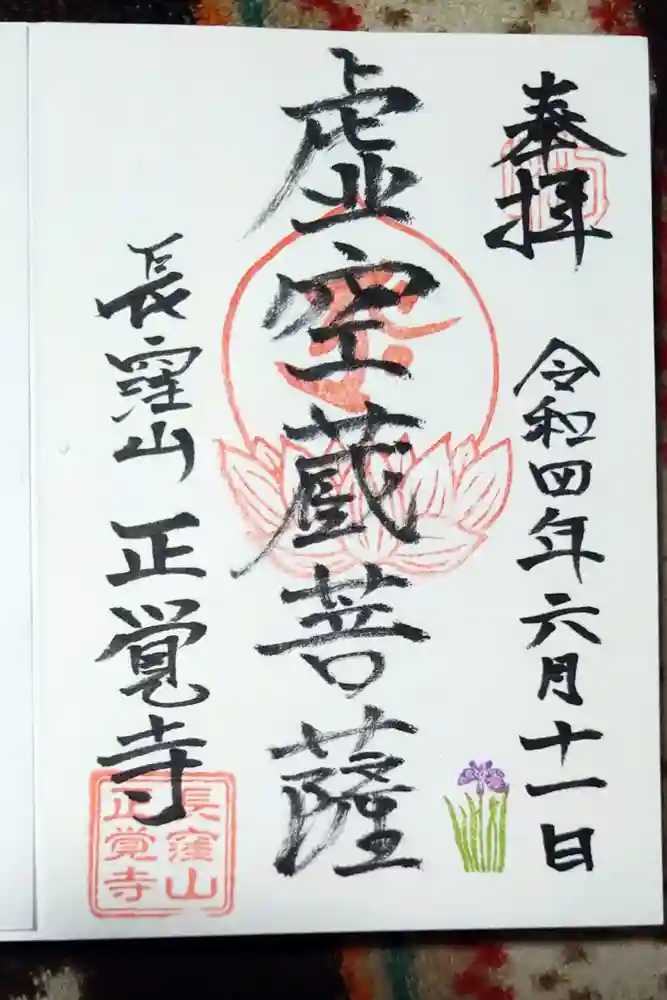 奉拝
令和四年六月十一日
虚空蔵菩薩
長窪山 正覚寺
長窪山
正覚寺